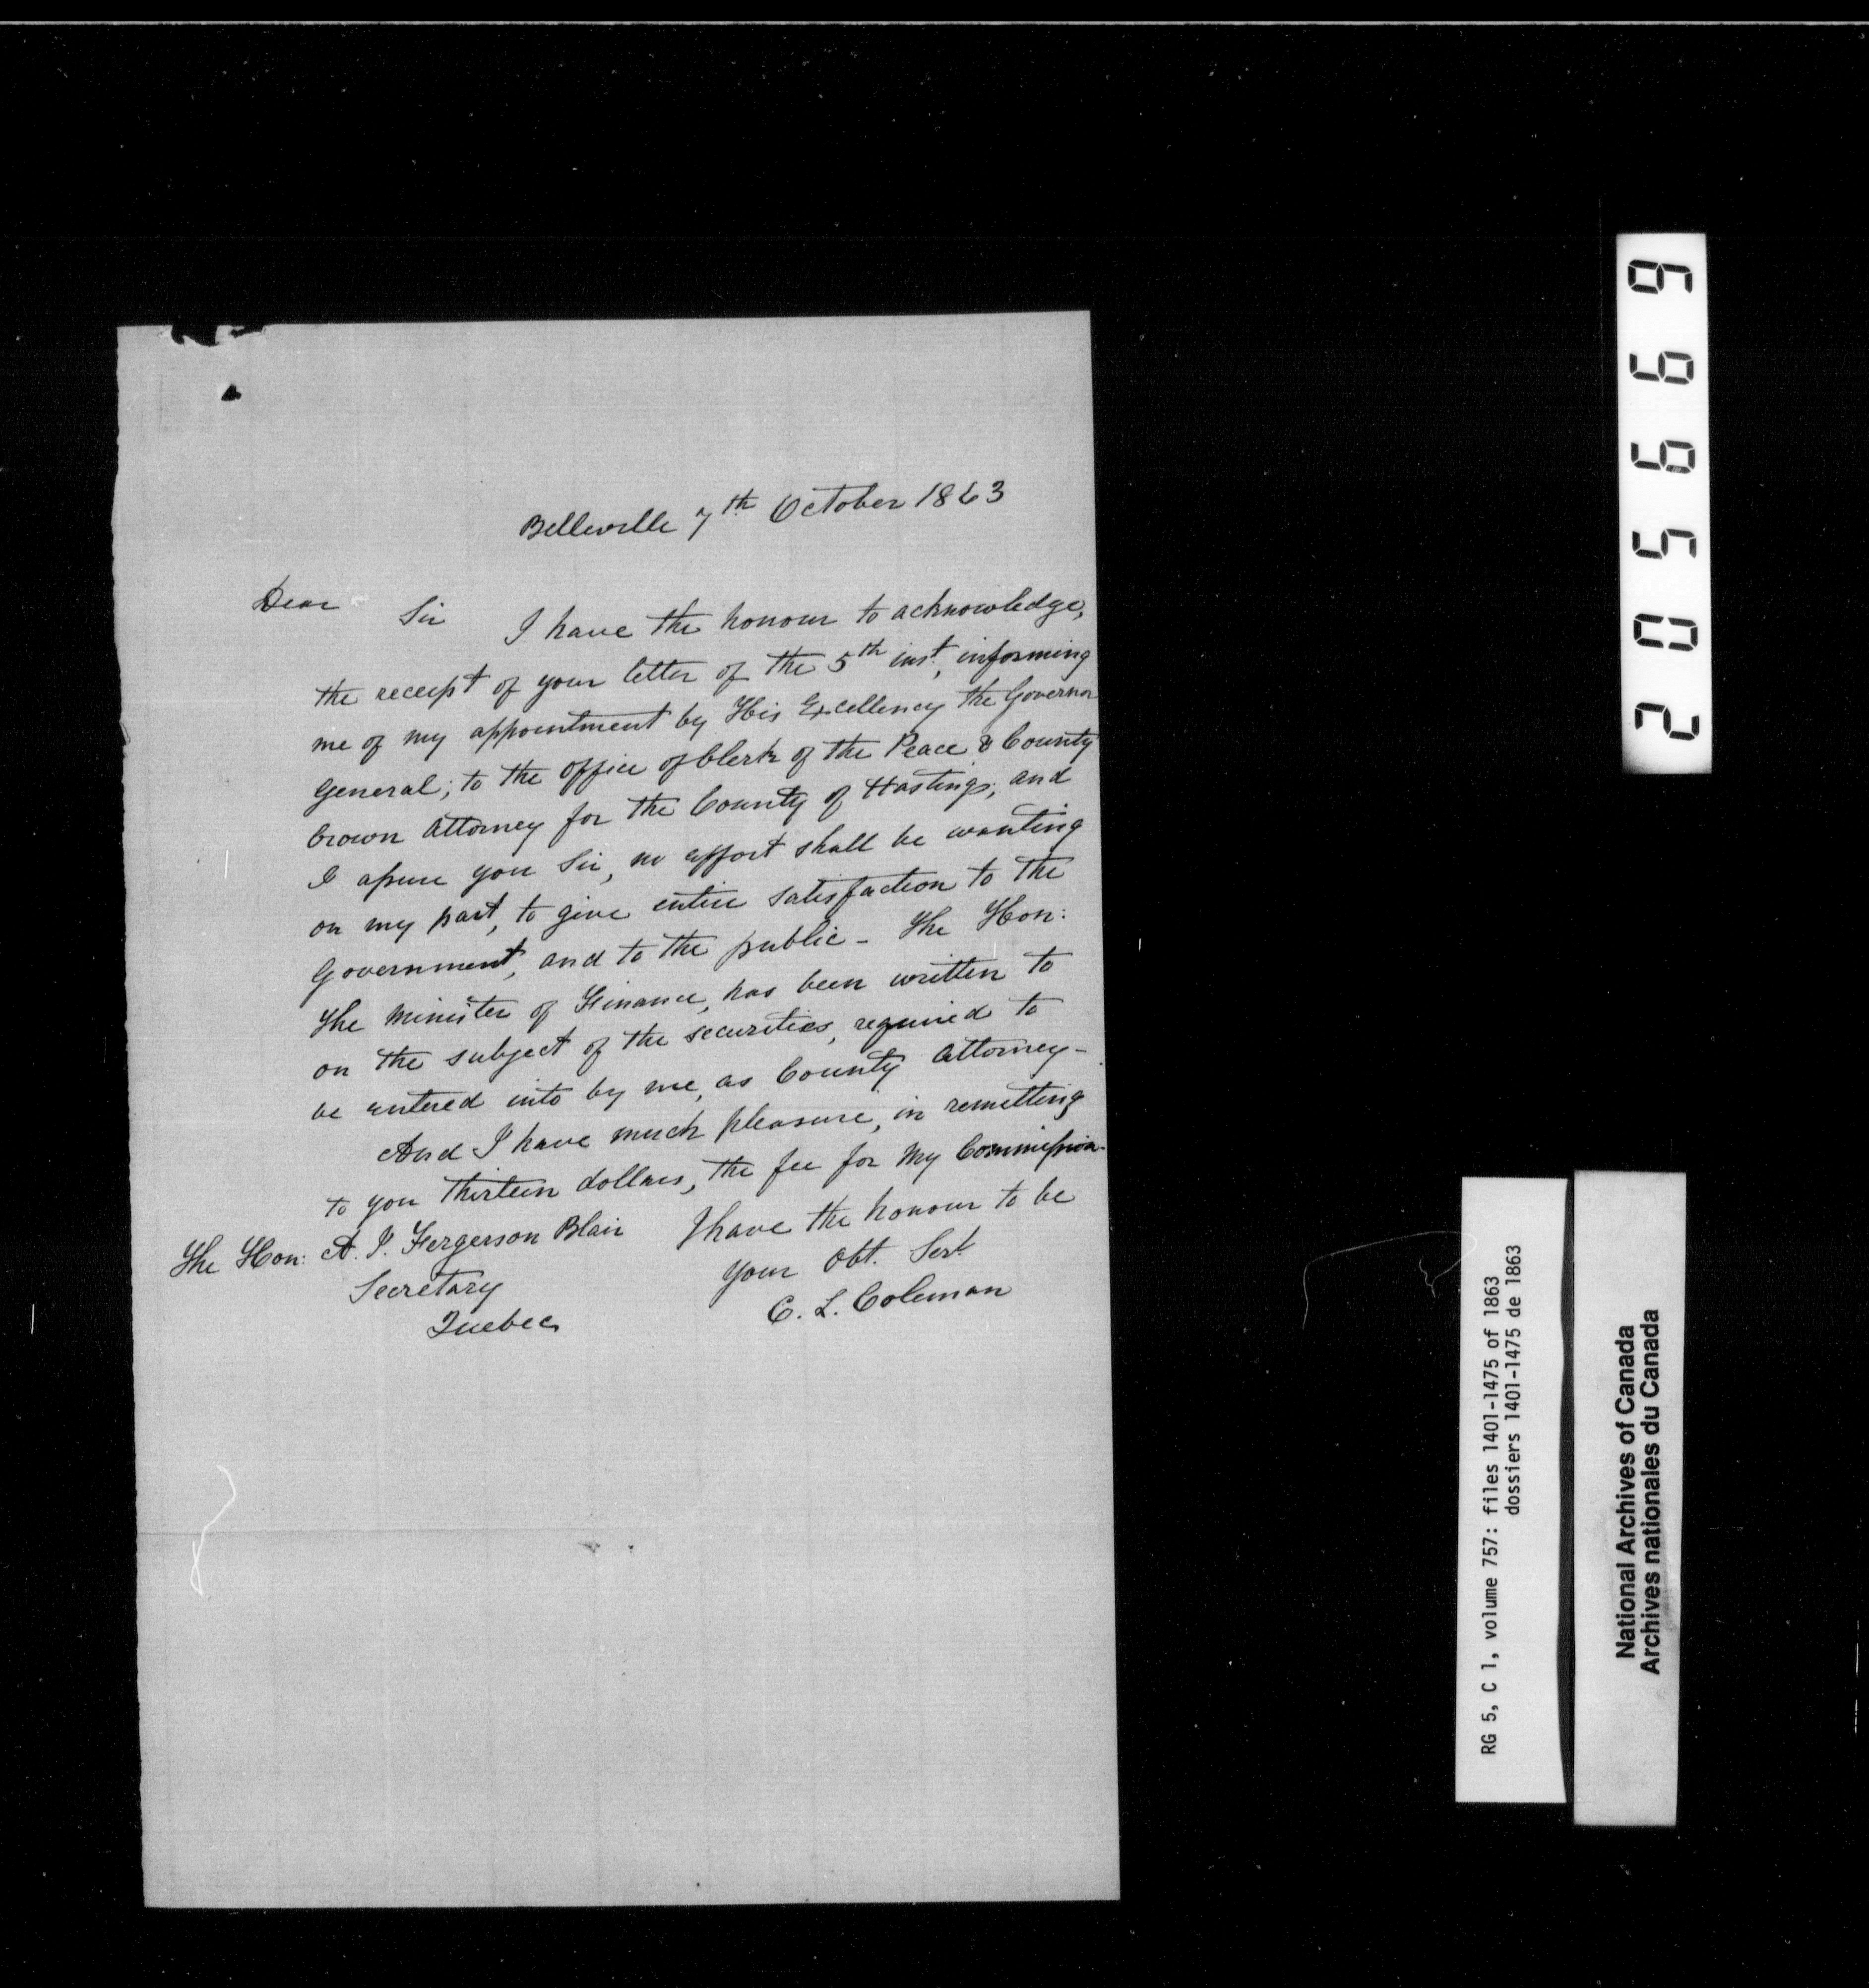 Belleville 7th October 1863
Dear Sir I have the honour to acknowledge,
the receipt of your letter of the 5th inst, informing
me of my appointment by His Excellency the Governor
General; to the office of Clerk of the Peace & County
Crown Attorney for the County of Hastings; and
I assure you Sir, no effort shall be wanting
on my part, to give entire satisfaction to the
Government, and to the public - The Hon:
The Minister of Finance, has been written to
on the subject of the securities, required to
be entered into by me, as County Attorney -
And I have much pleasure, in remitting
to you thirteen dollars, the fee for my Commission -
I have the honour to be
your obt. Sert
C. L. Coleman
The Hon: A. J. Fergerson Blair
Secretary
Quebec
205669
RG 5, C 1, volume 757: files 1401-1475 of 1863
dossiers 1401-1475 de 1863
National Archives of Canada
Archives nationales du Canada